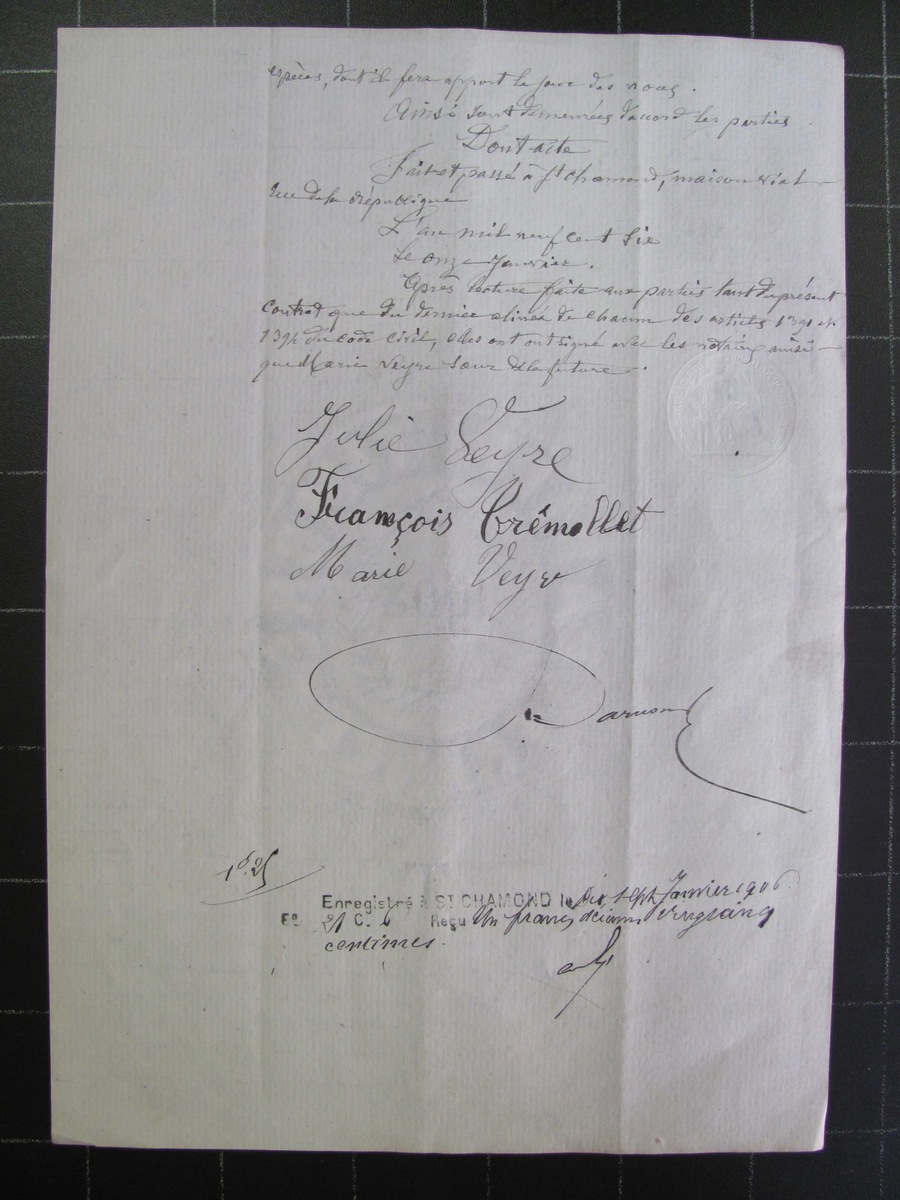 espèces, dont il fera apport le jour des noces.
Ainsi sont demeurées d'accord les parties
Dont acte
Fait et passé à St chamond, maison Vial
rue de la république
L'an mil neuf cent Six
Le onze Janvier.
Après lecture faite aux parties tant du présent
contrat que du dernier alinéa de chacun des articles 1391 et
1394 du code civil, elles ont ont signé avec les notaires ainsi
que Marie Veyre Sœur de la future.
Julie Veyre
François Crêmollet
Marie Veyre
1f.25
Enregistré à ST CHAMOND le dix sept Janvier 1906
F° 21 C. 6 Reçu Un franc, décimes vingt cinq
centimes.